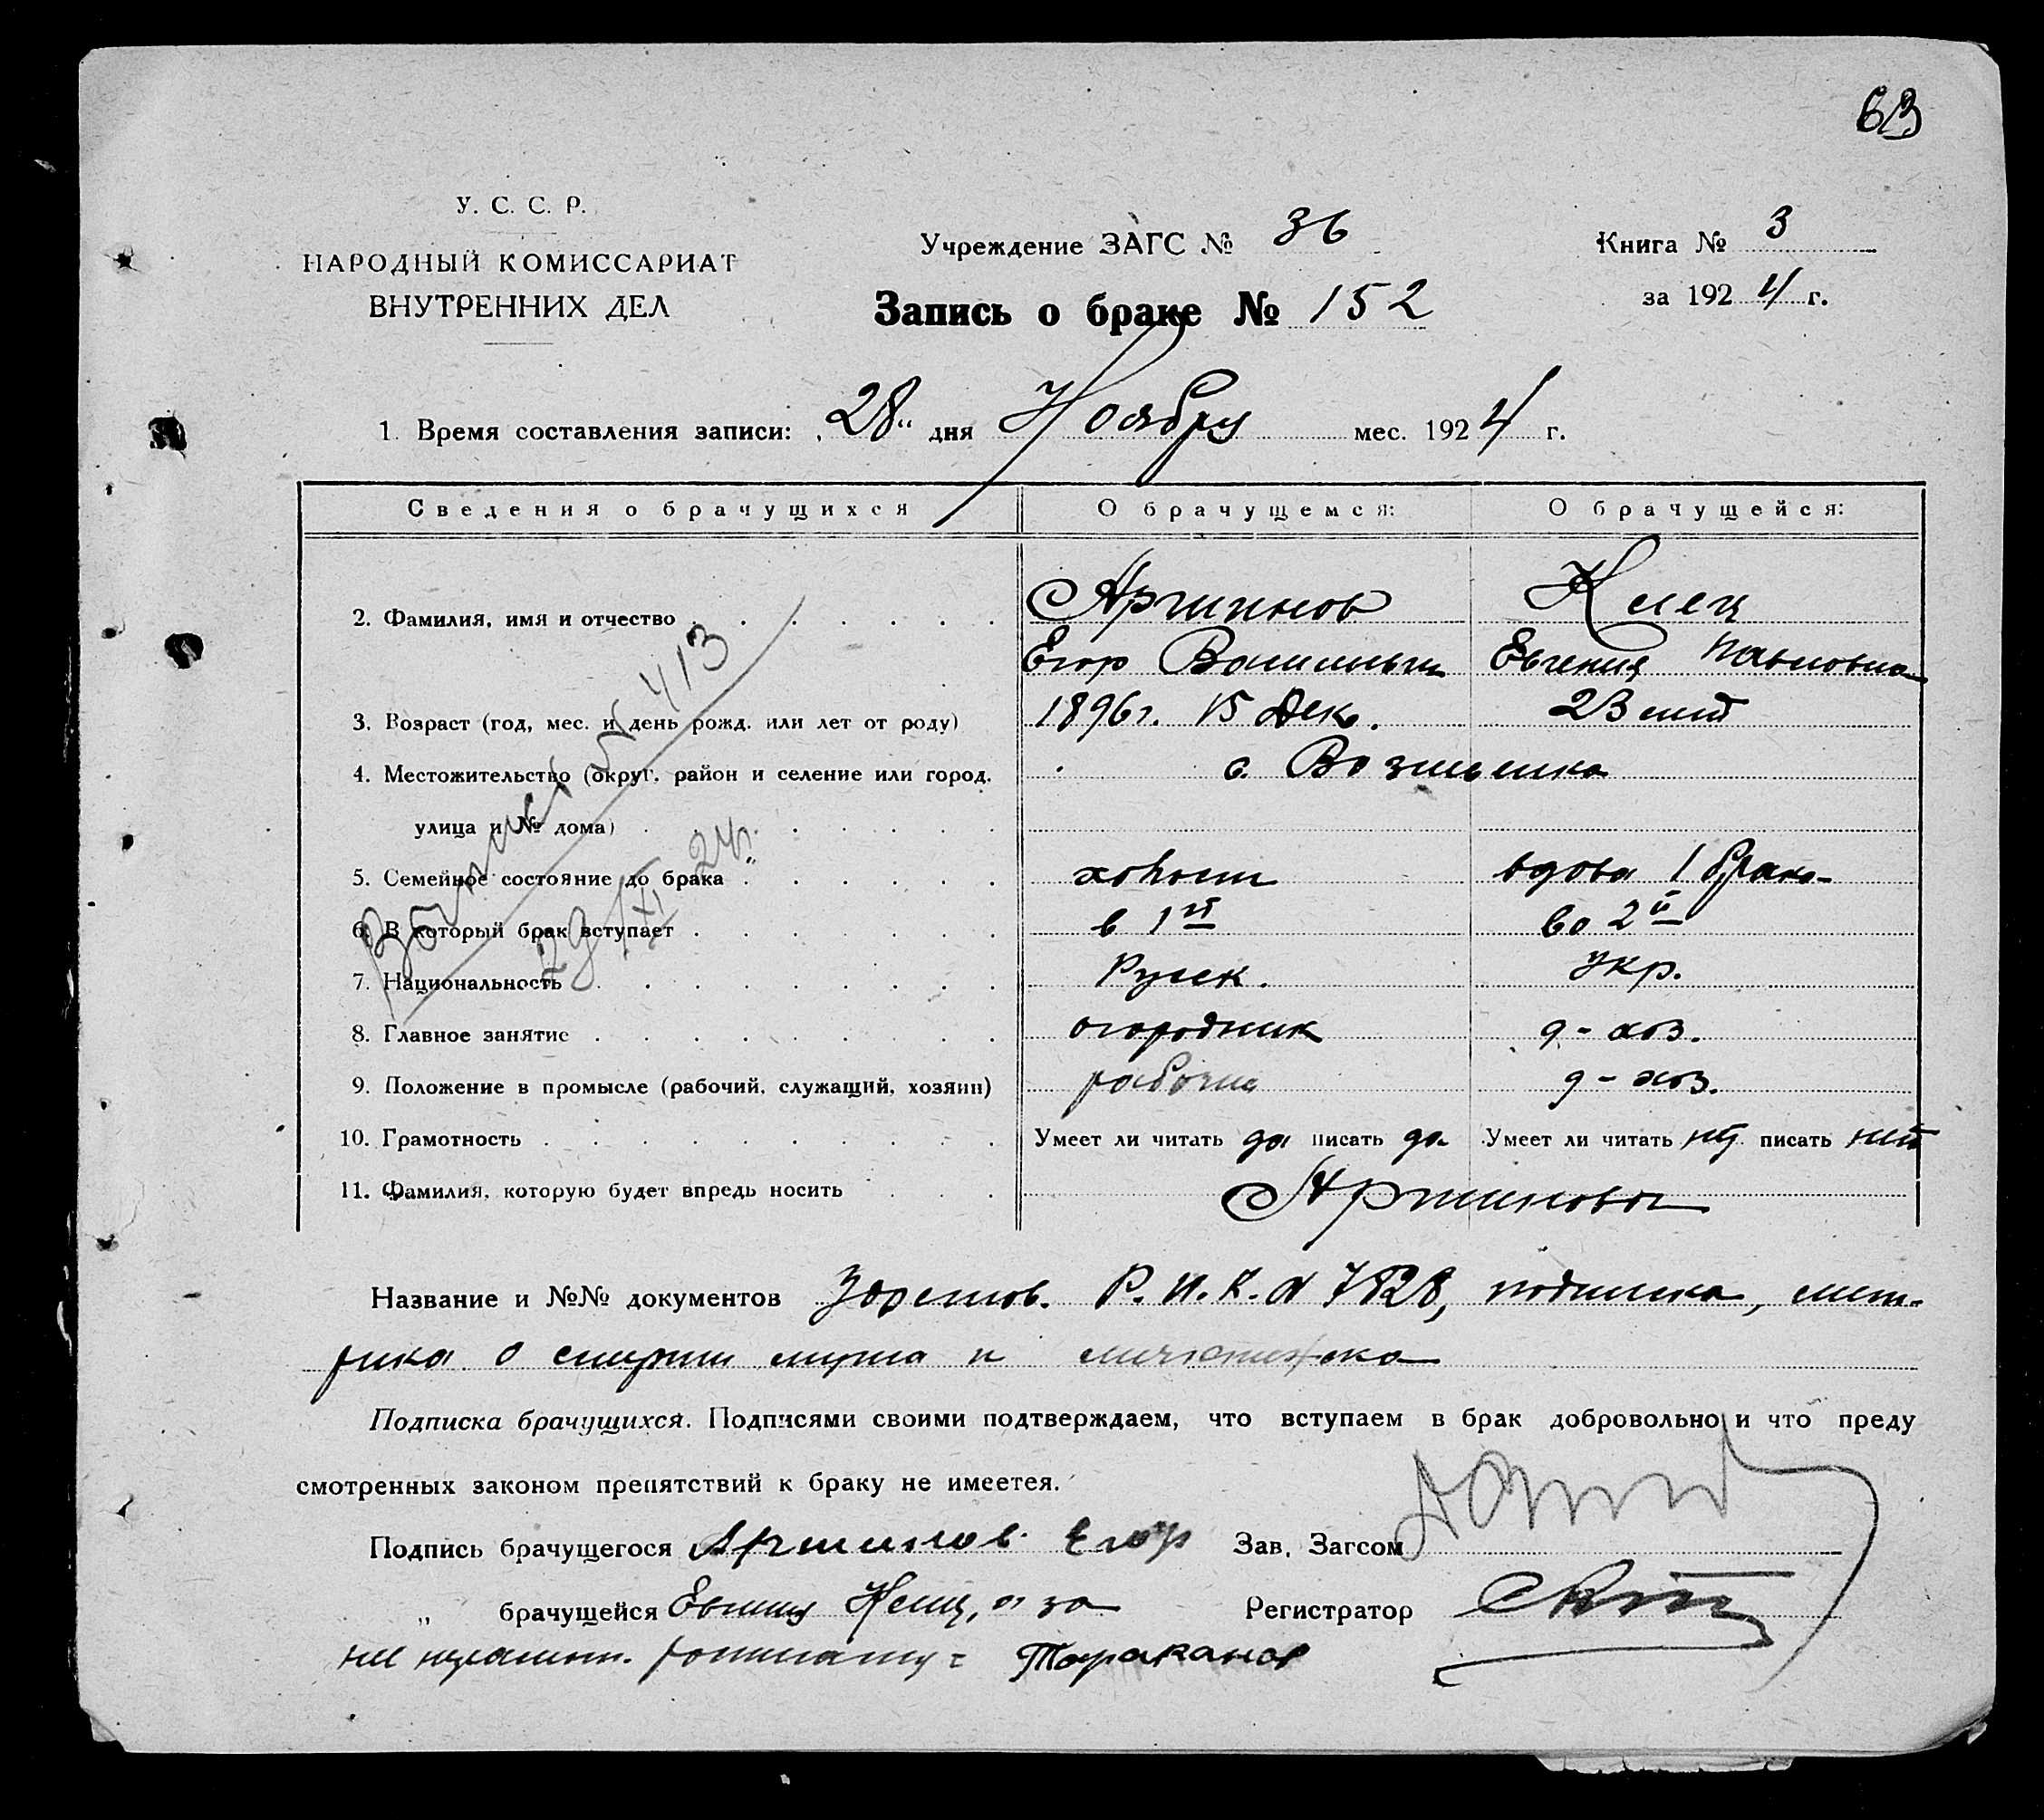 63
У. С. С. Р.
НАРОДНЫЙ КОМИССАРИАТ
ВНУТРЕННИХ ДЕЛ
Учреждение ЗАГС № 36
Книга № 3
за 1924 г.
Запись о браке № 152
1. Время составления записи: „28“ дня Ноября мес. 1924 г.
Сведения о брачущихся О брачущемся: О брачущейся:
2. Фамилия, имя и отчество Аршинов Клец
Егор Васильевич Евгения Павловна
3. Возраст (год, мес. и день рожд. или лет от роду) 1896г. 15 Дек. 23 лет
4. Местожительство (округ, район и селение или город, с.
улица и № дома)
5. Семейное состояние до брака холост вдова 1 брака
6. В который брак вступает в 1й во 2й
7. Национальность Русск. Укр.
8. Главное занятие огородник д-хоз.
9. Положение в промысле (рабочий, служащий, хозяин) рабочий д-хоз.
10. Грамотность Умеет ли читать да писать да Умеет ли читать нет писать нет
11. Фамилия, которую будет впредь носить Аршинова
Выпись № 413
29/XI 24г.
Название и №№ документов Удостов. Р.И.К. № 7828, подписка, мет-
рика о смерти мужа и
Подписка брачущихся. Подписями своими подтверждаем, что вступаем в брак добровольно и что преду
смотренных законом препятствий к браку не имеется.
Подпись брачущегося Аршинов Егор Зав. Загсом
„ брачущейся Евгения Клец, а за Регистратор
нее неграмотн. Тараканов